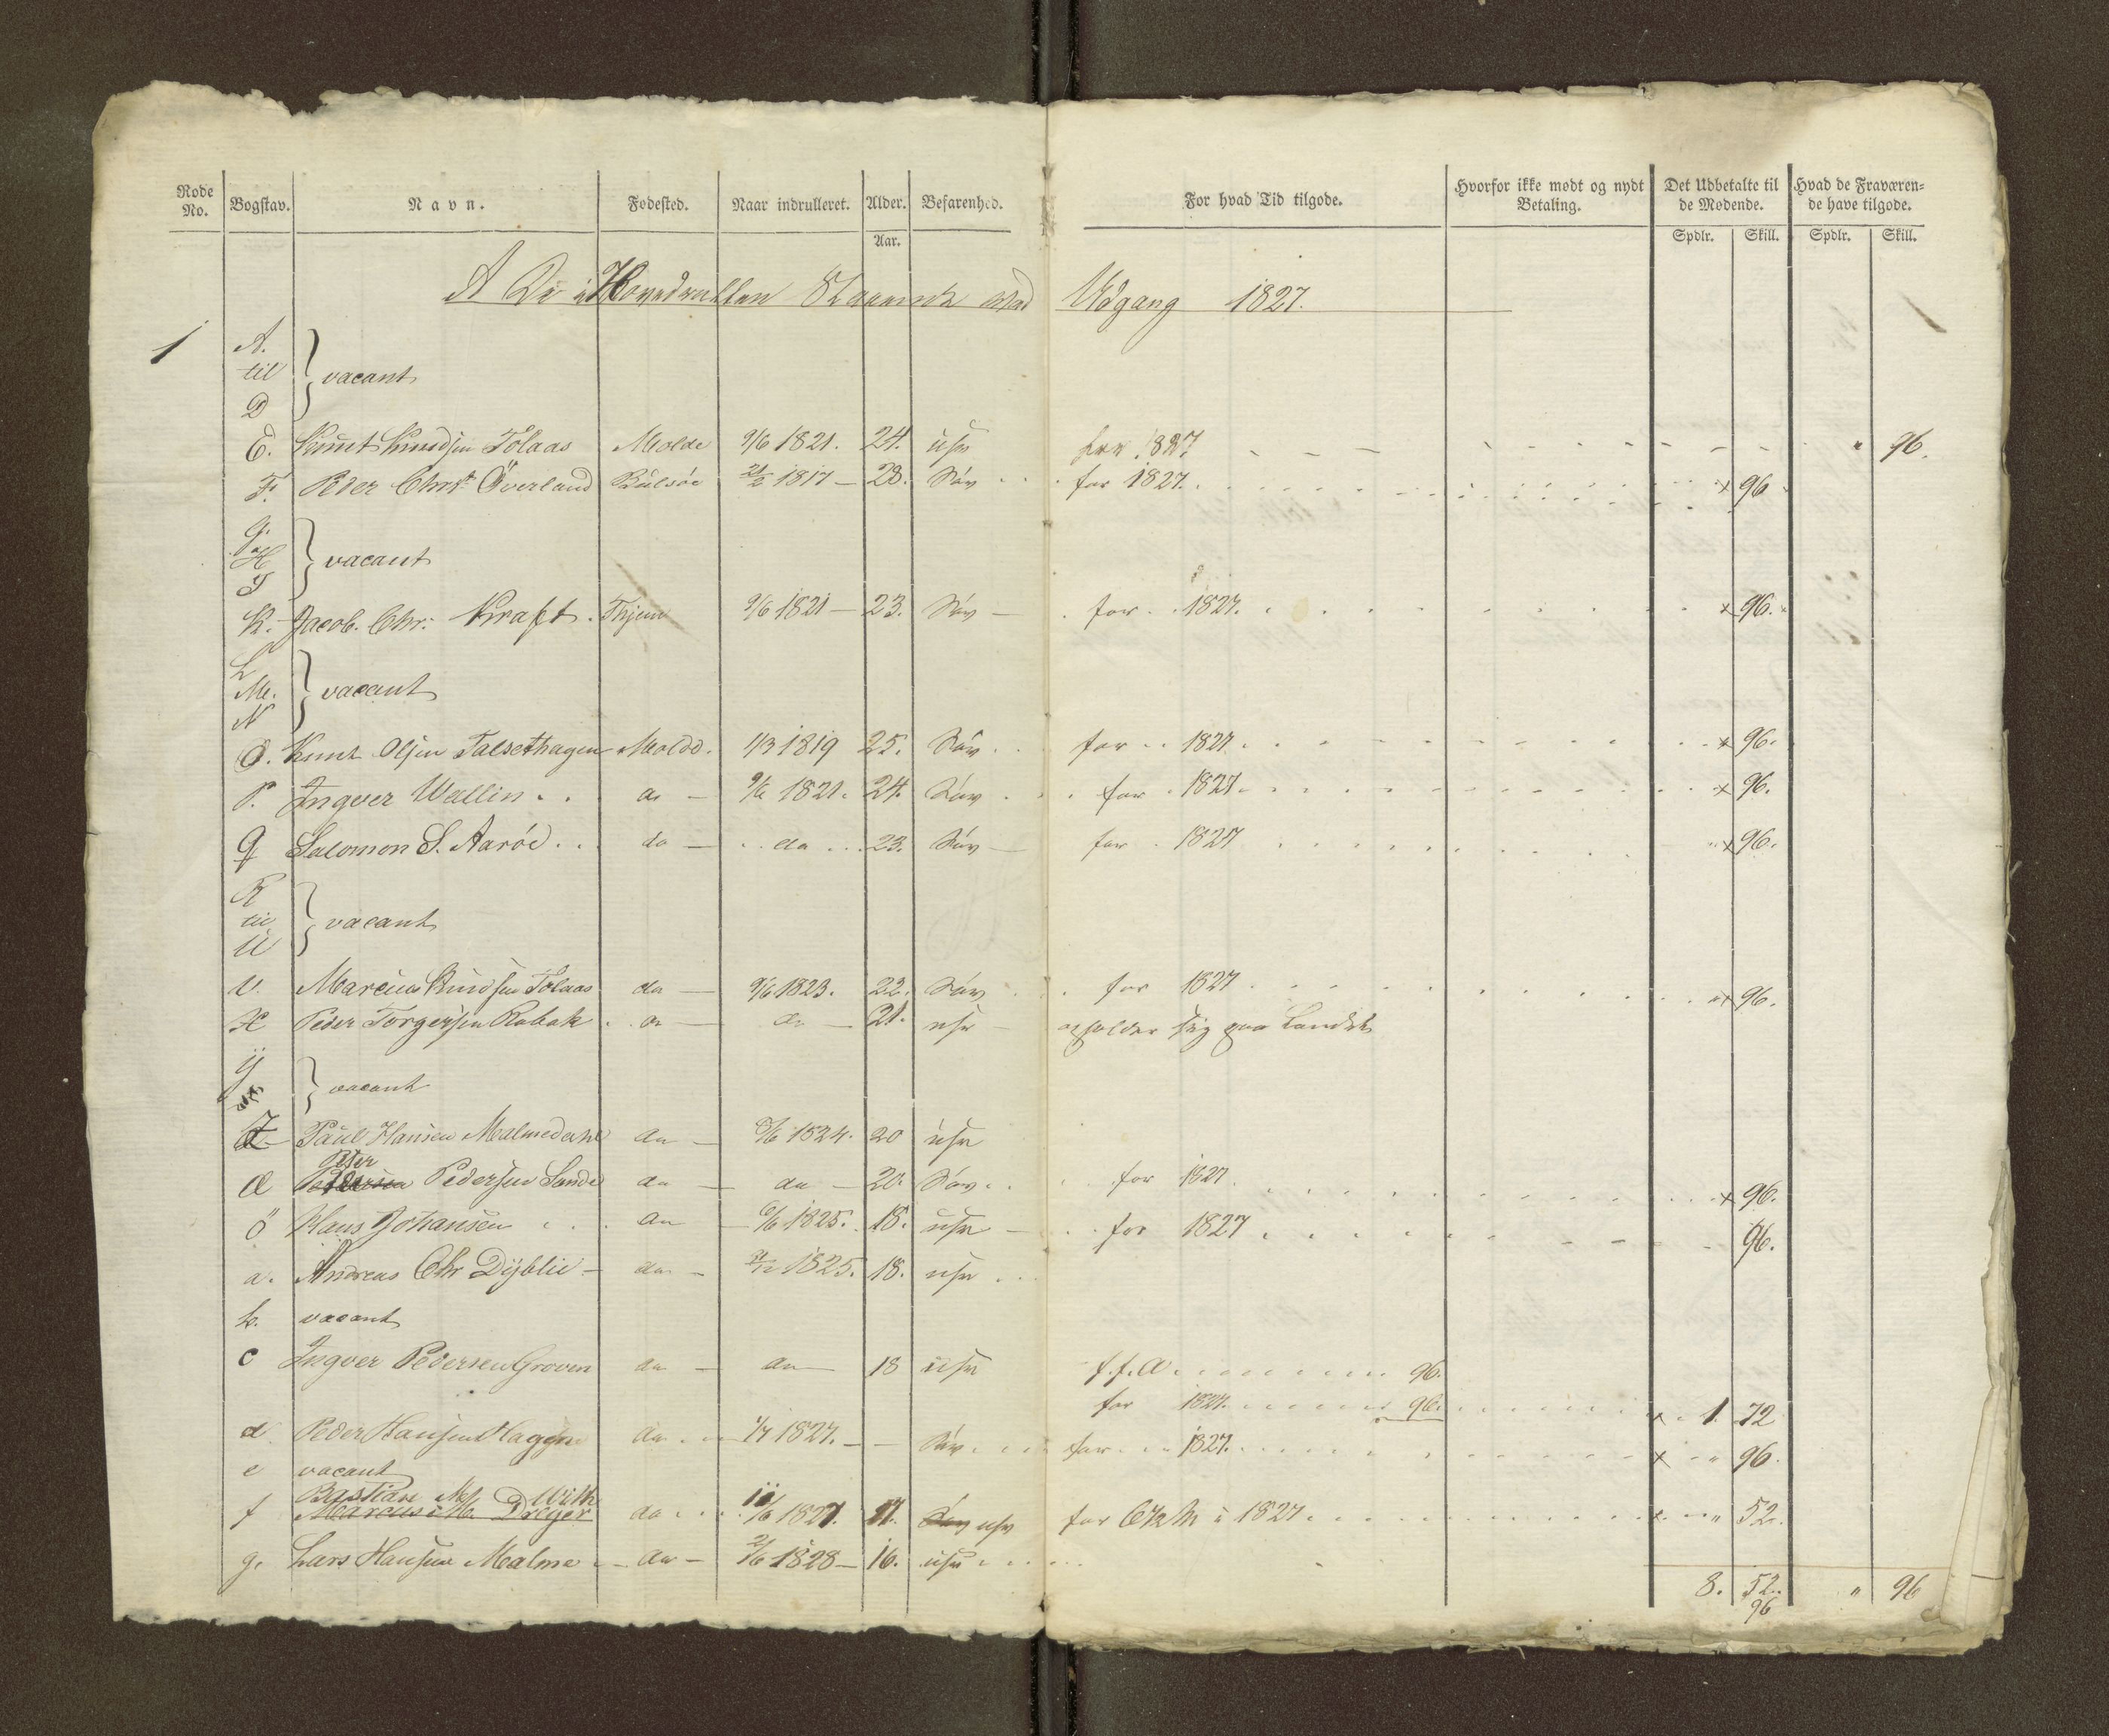 Rode No. Bogstav. Navn. Fødested. Naar indrulleret. Alder. Befarenhed. For hvad Tid tilgode. Hvorfor ikke mødt og nydt Betaling. Det Udbetalte til de Mødende. Hvad de Fraværende have tilgode.
Aar. Spdlr. Skill. Spdlr. Skill.
A De i Hovedrullen Staaende ved Udgang 1827.
1 A.
til vacant
D
E. Knut Knudsen Tolaas Molde 9/6 1821. 24. ufr for 1827 " 96.
F. Peder Christ Överland Bolsöe 21/2 1817 - 28. Søv for 1827. x 96
G.
H vacant
I
K. Jacob. Chr: Kraft. Thjem 9/6 1821 - 23. Søv - for 1827. x 96.
L
M. vacant
N
O. Knut Olsen Talsethagen Molde. 1/3 1819 25. Søv for 1827. x 96.
P. Ingver Wallin do - 9/6 1821. 24. Søv for 1827. x 96.
Q Salomon S. Aaröe do - do 23. Søv - for 1827 " x 96.
R
til vacant
U
V. Marcus Knudsen Tolaas do - 9/6 1823. 22. Søv for 1827 " x 96.
X Peder Torgersen Robak do - do - 21. ufr - opholder sig paa Landet
Y
vacant
Paul Hansen Malmedahl do - 1824. 20 ufr
Æ Peter Pedersen Sande do - do - 20. Søv for 1827. x 96.
Ö Hans Johansen do - 6/6 1825. 18. ufr - for 1827 96.
a. Andreas Chr Dyblie - do - 1825. 18. ufr
b. vacant
c Ingver Pedersen Groven do - do - 18 ufr f. f. A 96.
for 1827. 96. x 1. 72
d Peder Hansen Hagen do 1/7 1827. - - Søv for 1827. x " 96.
e vacant
Bastian With
f Marcus M. Dreyer do 11/6 1827. 17. Søv ufr for 6½ M i 1827 x " 52.
g. Lars Hansen Malme - do - 2/6 1828 - 16. ufr
8. 52. " 96
96